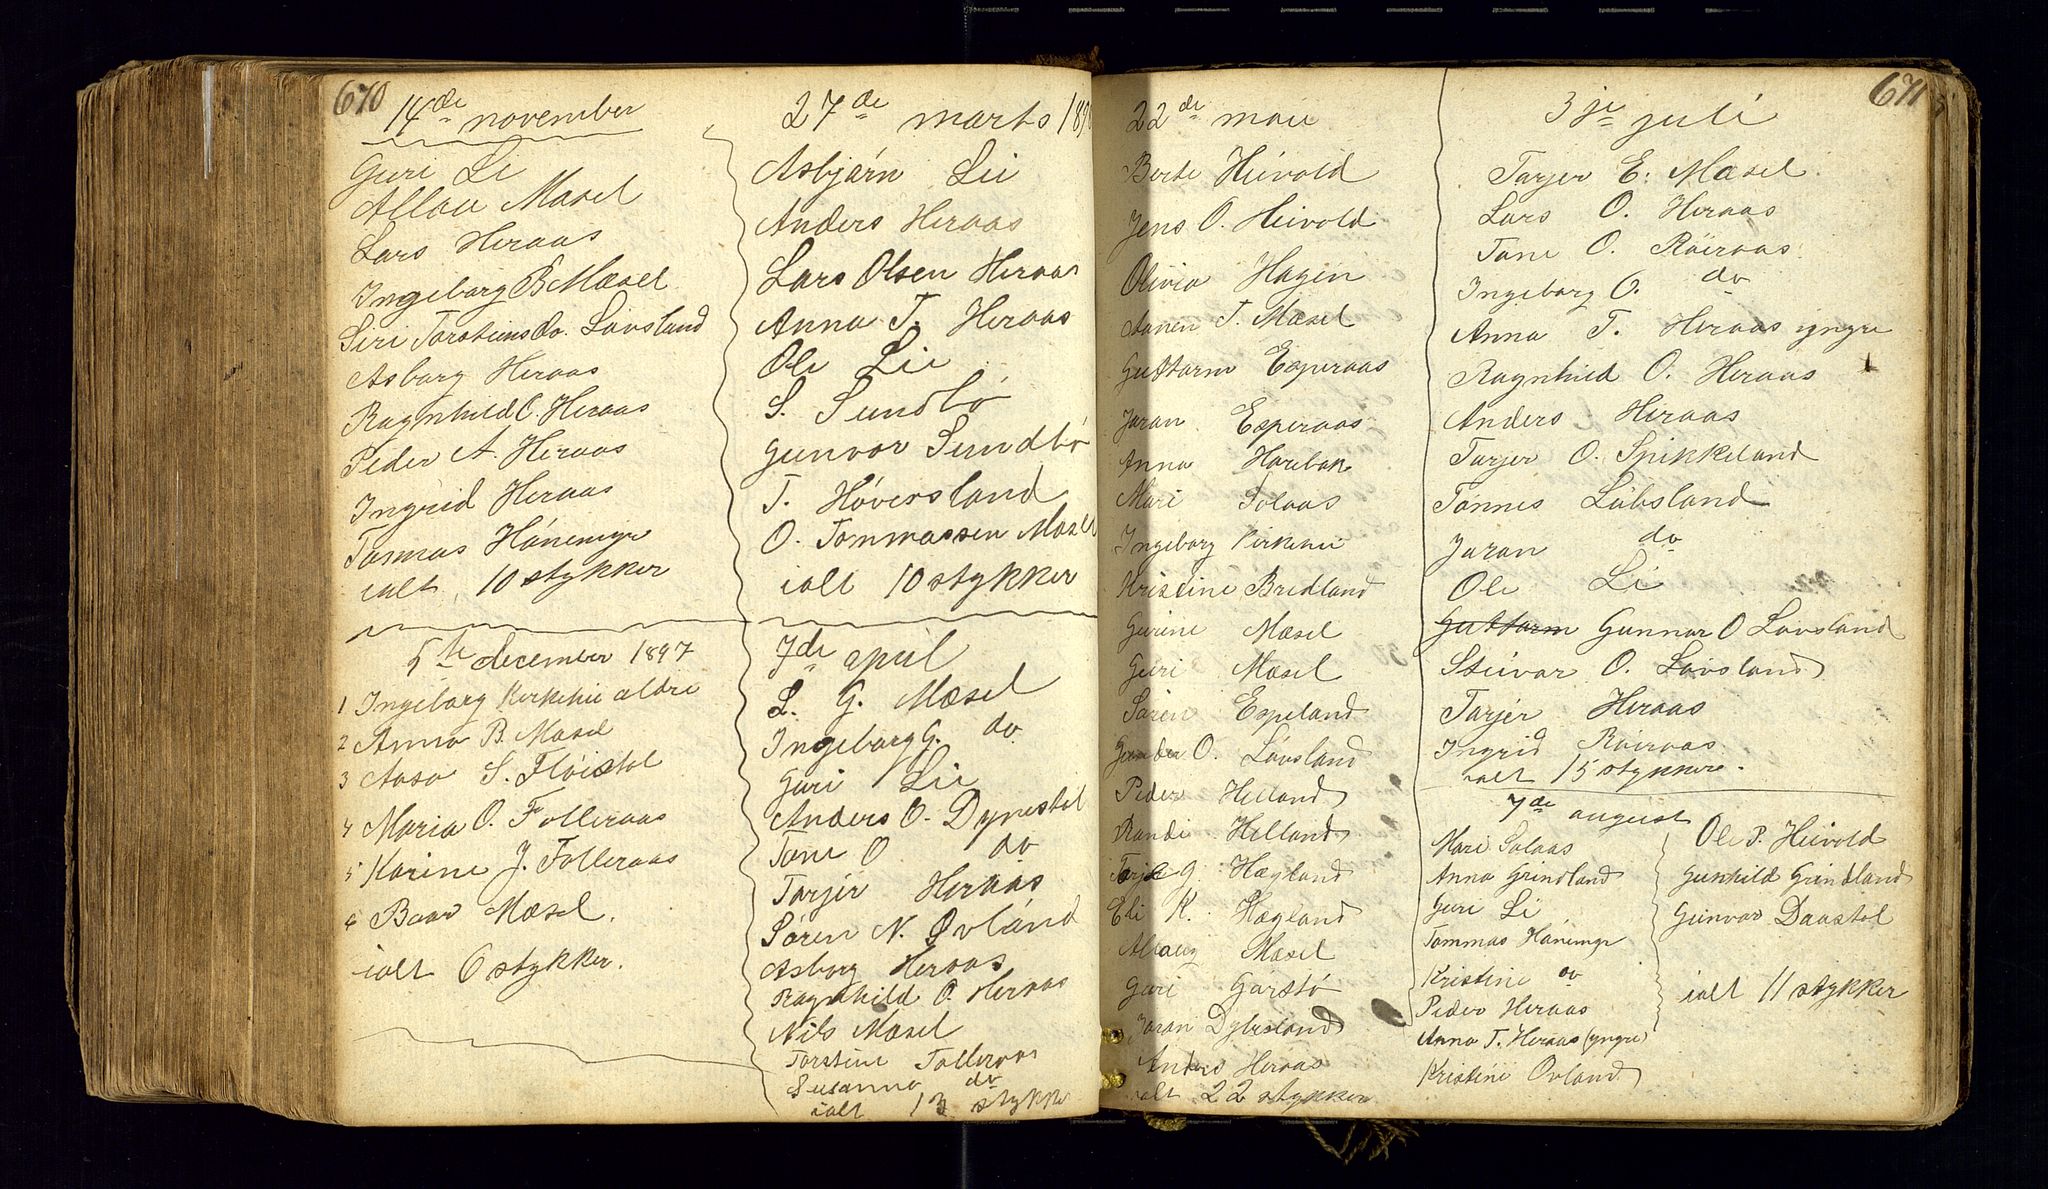 670
14de november
Guri Li
Allou Mæsel
Lars Heraas
Ingeborg B Mæsel
Siri Torsteinsdo. Lövsland
Asborg Heraas
Ragnhild O. Heraas
Peder A. Heraas
Ingrid Heraas
Tommas Hónemyr
ialt 10 stykker
5te december 1897
1 Ingeborg Kerkehei ældre
2 Anna B. Mæsel
3 Aasa S. Flöistol
4 Maria O. Folleraas
5 Karine J. Folleraas
6 Baar Mæsel.
ialt 6 stykker.
27de marts
Asbjörn Lii
Anders Heraas
Lars Olsen Heraas
Anna T. Heraas
Ole Lii
S. Sundbö
Gunvor Sundbö
T. Höversland
O. Tommassen Mæsel
ialt 10 stykker
7de april
L. G. Mæsel
Ingeborg G. do
Guri Lii
Anders O. Dynestöl
Tone O do
Tarjer Heraas
Sören N. Øvland
Asborg Heraas
Ragnhild O. Heraas
Nils Mæsel
Torstine Folleraas
Susanna do
ialt 13 stykker
22de mai
Berte Heivold
Jens O. Heivold
Olivia Hagen
Aanen T. Mæsel
Guttorm Esperaas
Joran Esperaas
Anna Harebak
Mari Solaas
Ingeborg Kirkehei
Kristine Bredland
Gurine Mæsel
Guri Mæsel
Sören Espeland
Gunder O. Lövsland
Peder Helland
Randi Helland
Tarje G. Hægland
Eli K. Hægland
Mæsel
Guri Garstö
Joran Dybesland
Anders Heraas
ialt 22 stykker
671
3je juli
Tarjer E. Mæsel
Lars O. Heraas
Tone O. Röiraas
Ingeborg O. do
Anna T. Heraas yngre
Ragnhild O. Heraas
Anders Heraas
Tarjer O. Spikkeland
Tönnes Löbsland
Joran do
Ole Li
Guttorm Gunnar O Lövsland
Steivar O. Lövsland
Tarjer Heraas
Ingrid Röiraas
ialt 15 stykker.
7de august
Mari Solaas
Anna Grindland
Guri Li
Tommas Hönemyr
Kristine do
Peder Heraas
Anna T. Heraas (yngre)
Kristine Ovland
Ole P. Heivold
Gunhild Grindland
Gunvor Daastöl
ialt 11 stykker